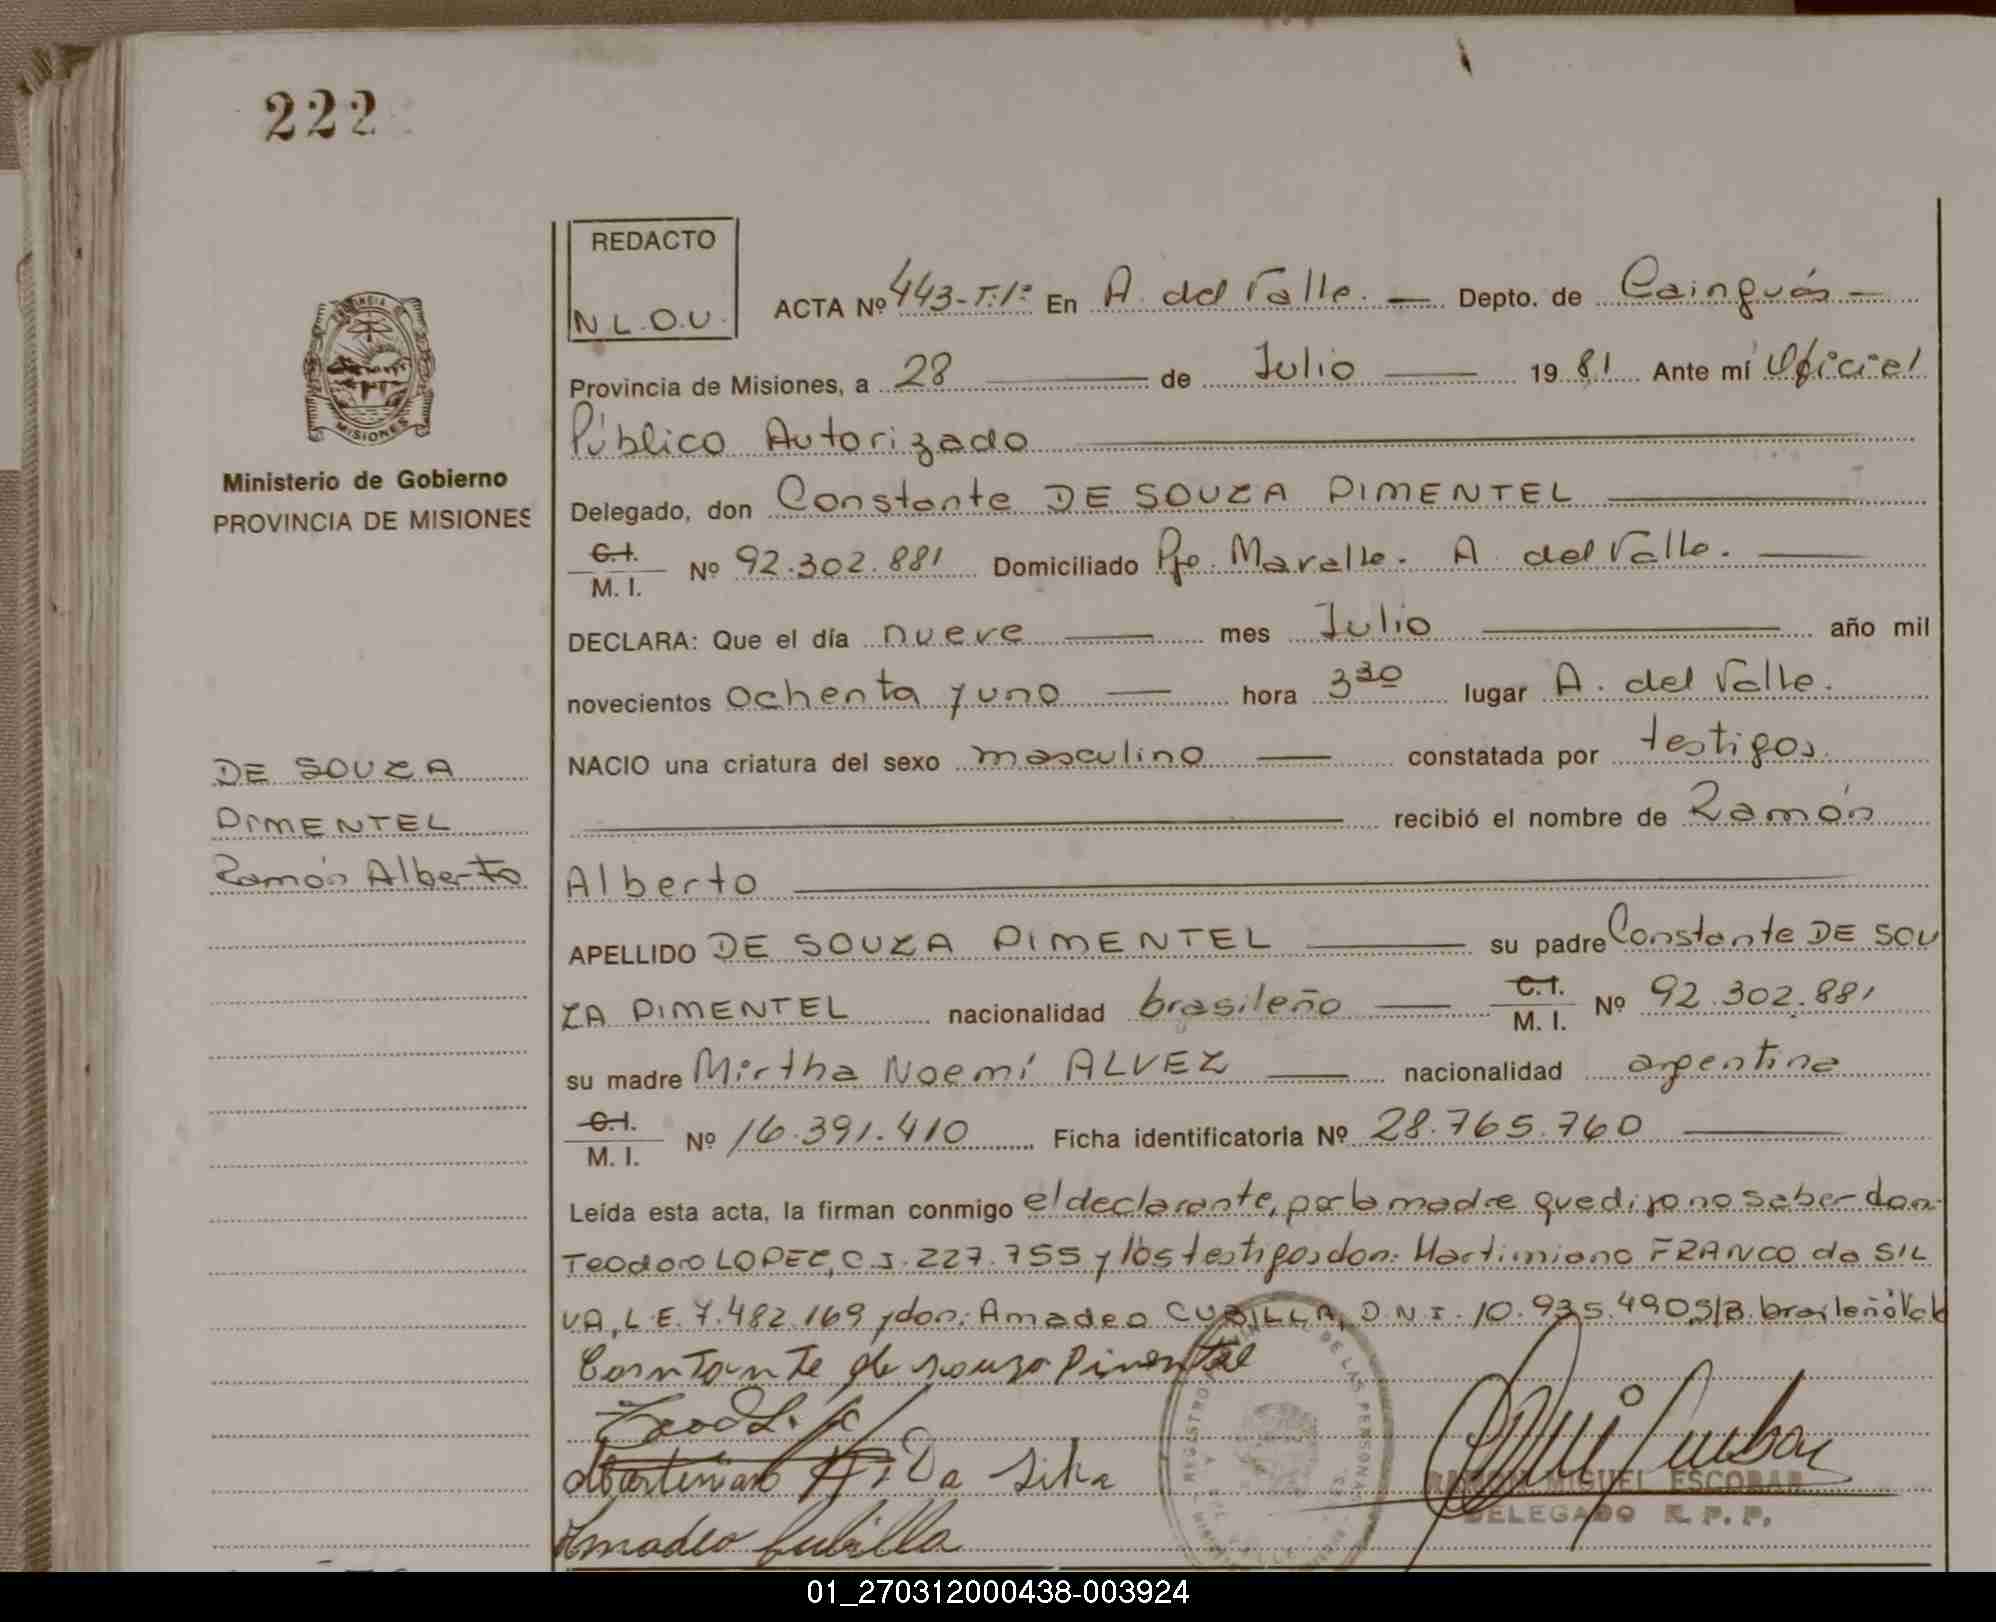 222
REDACTO
N.L.O.U.
ACTA Nº 443-T:1º En A. del Valle. Depto. de Cainguás
Provincia de Misiones, a 28 de Julio 1981 Ante mí Oficial
Público Autorizado
Delegado, don Constante DE SOUZA PIMENTEL
C.I. M. I. Nº 92.302.881 Domiciliado Pje. Maralle. A. del Valle.
DECLARA: Que el día nueve mes Julio año mil
novecientos ochenta y uno hora 3 30 lugar A. del Valle.
NACIO una criatura del sexo masculino constatada por testigos.
recibió el nombre de Ramón
Alberto
APELLIDO DE SOUZA PIMENTEL su padre Constante DE SOU
ZA PIMENTEL nacionalidad brasileño C.I. M. I. Nº 92.302.881
su madre Mirtha Noemí ALVEZ nacionalidad argentina
C.I. M. I. Nº 16.391.410 Ficha identificatoria Nº 28.765.760
Leída esta acta, la firman conmigo el declarante, por la madre que dijo no saber don:
Teodoro LOPEZ, C.I. 227.755 y los testigos don: Martimiano FRANCO da SIL
VA, L.E. 7.482.169 y don: Amadeo CUBILLA, D.N.I. 10.935.490 S/B. brasileño Vale
Constante de souza Pimentel
Da Silva
Amadeo Cubilla
RAMON MIGUEL ESCOBAR
DELEGADO R. P. P.
PROVINCIA DE
MISIONES
Ministerio de Gobierno
PROVINCIA DE MISIONES
DE SOUZA
PIMENTEL
Ramón Alberto
REGISTRO DE LAS PERSONAS
01_270312000438-003924